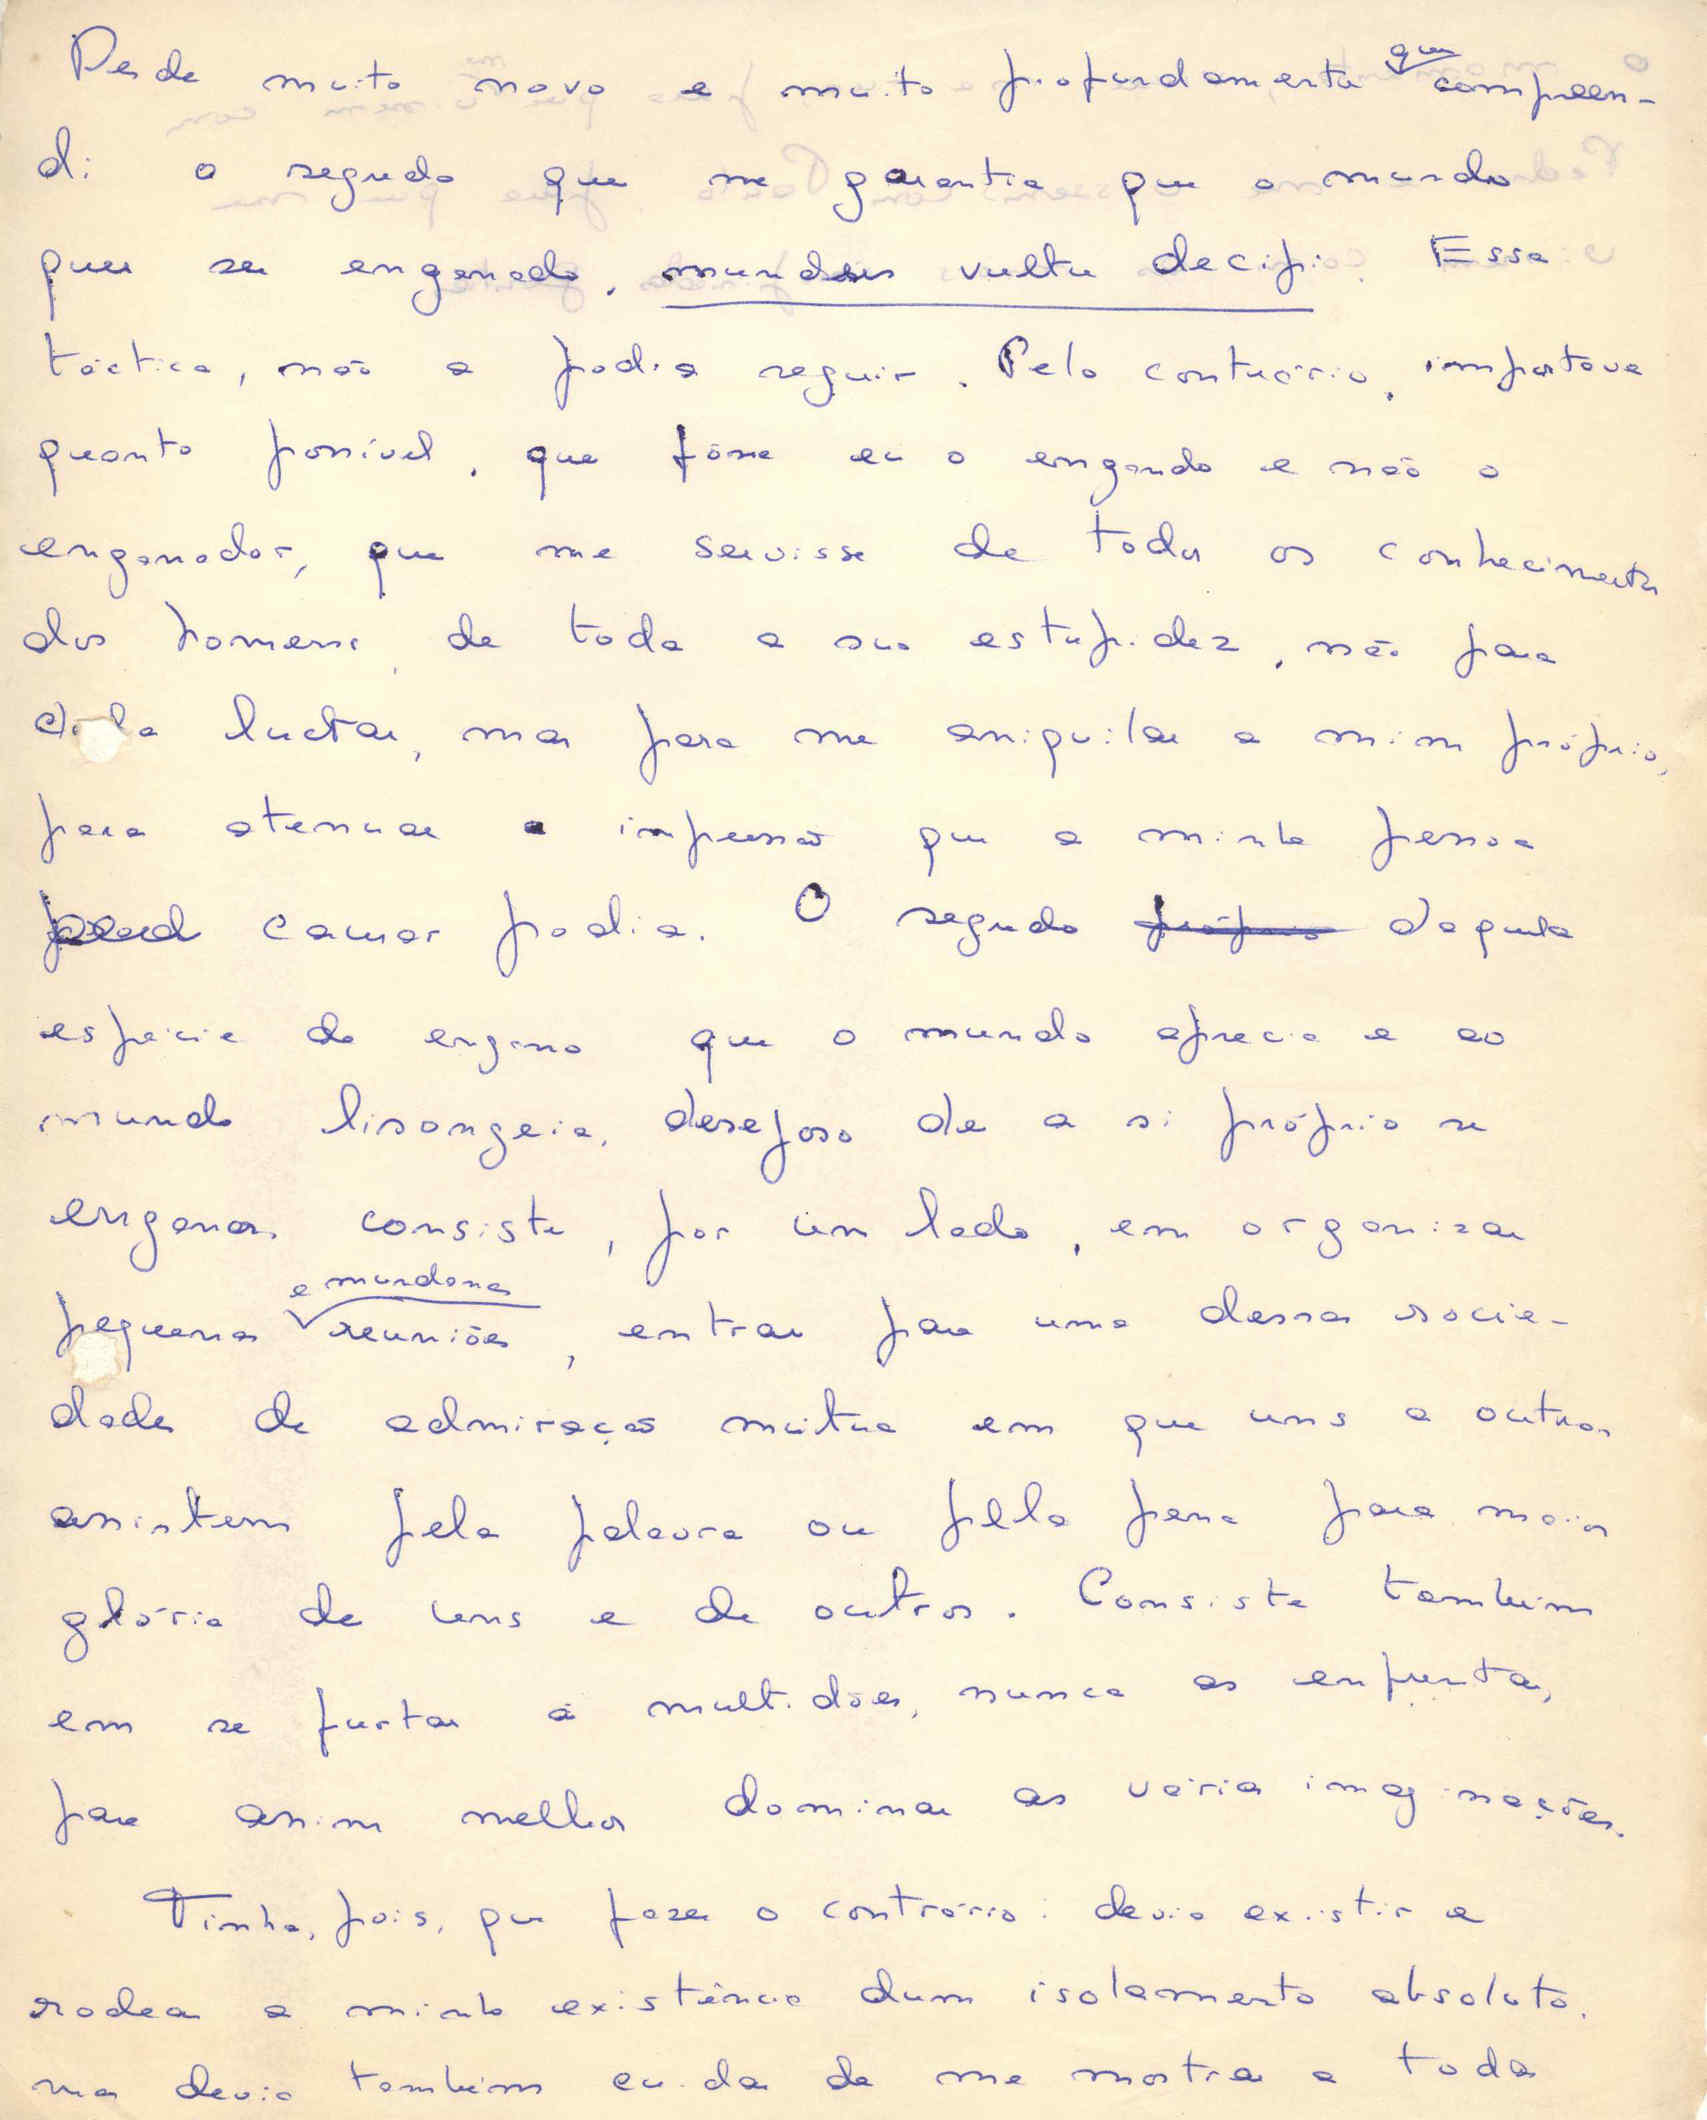 Desde muito novo e muito profundamente que compreen-
di o segredo que me garantia que o mundo
quer ser enganado, mundus vultu decipi. Essa
táctica, não a podia seguir. Pelo contrário, importava
quanto possível, que fôsse eu o enganado e não o
enganador, que me servisse de todos os conhecimentos
dos homens, de toda a sua estupidez, não para
dela luctar, mas para me aniquilar a mim próprio,
para atenuar a impressão que a minha pessoa
causar podia. O segredo próprio daquela
espécie de engano que o mundo aprecia e ao
mundo lisongeia, desejoso de a si próprio se
enganar consiste, por um lado, em organizar
pequenas e mundanas reuniões, entrar para uma dessas socie-
dades de admiração mútua em que uns a outros
assistem pela palavra ou pela pena para maior
glória de uns e de outros. Consiste também
em se furtar à multidões, nunca as enfrentar,
para assim melhor dominar as várias imaginações.
Tinha, pois, que fazer o contrário: devia existir e
rodear a minha existência dum isolamento absoluto,
mas devia também cuidar de me mostrar a toda